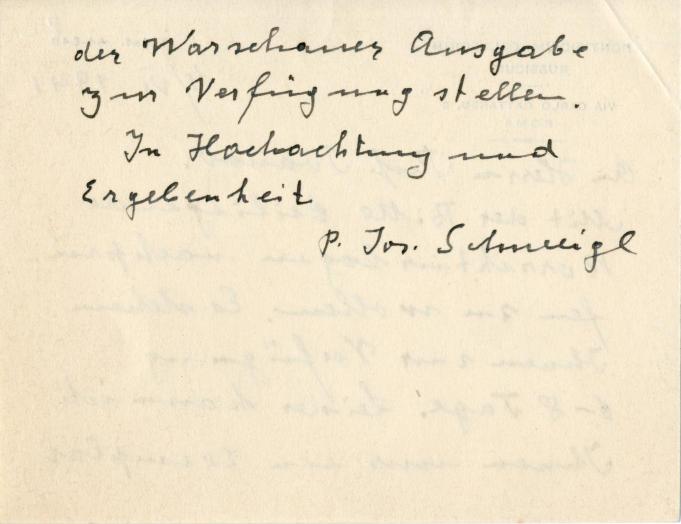 der Warschauer Ausgabe
zur Verfügung stellen.
In Hochachtung und
Ergebenheit
P. Jos. Schweigl